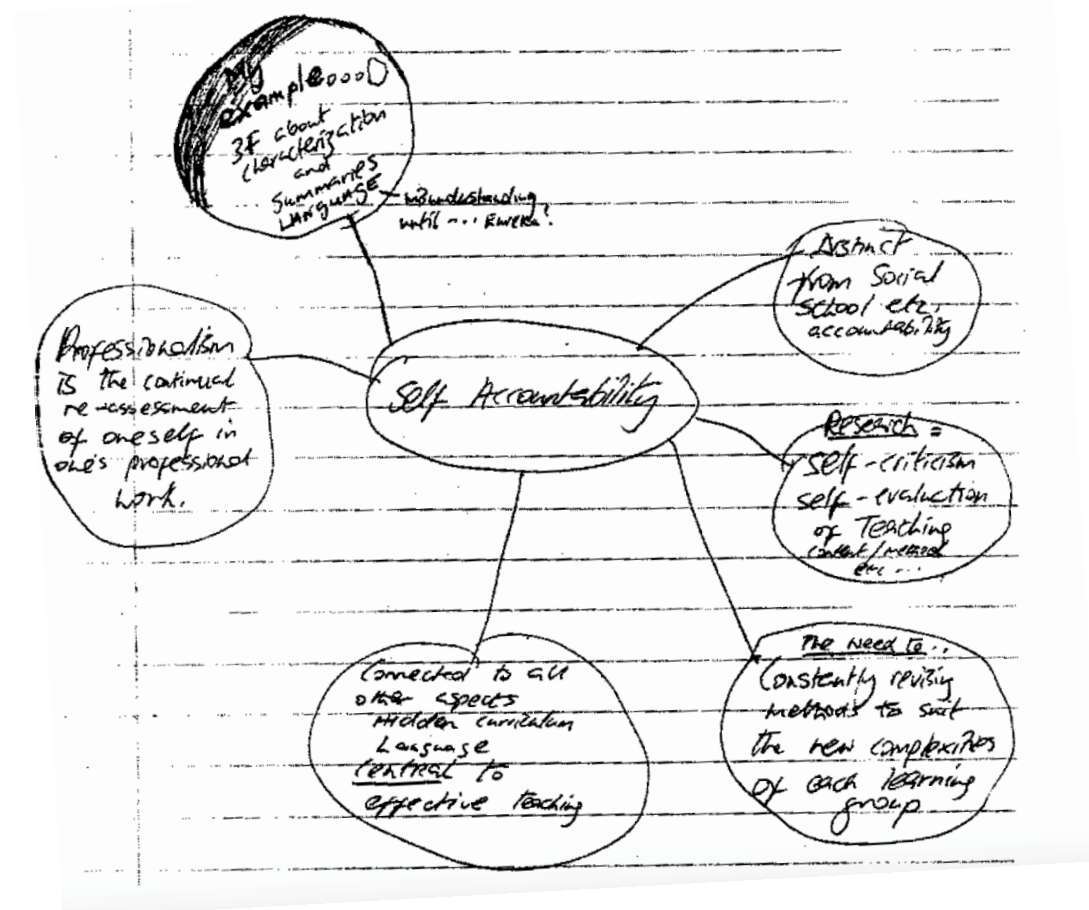 My
example....
3F about
characterization
and
Summaries
LANGUAGE
misunderstanding
until ... Eureka!
Distinct
from Social
School etc.
accountability
Professionalism
is the continual
re-assessment
of oneself in
one's professional
work.
Self Accountability
Research =
self-criticism
self-evaluation
of Teaching
content/method
etc ....
Connected to all
other aspects
Hidden curriculum
Language
Central to
effective teaching
The need to..
Constantly revising
methods to suit
the new complexities
of each learning
group